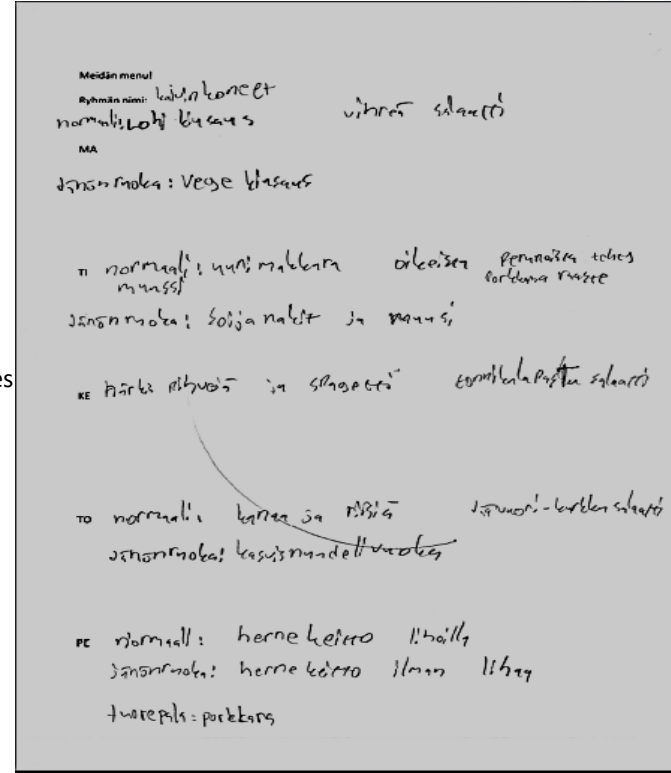 Meidän menu!
Ryhmän nimi: kaivinkoneet
normaali: Lohi kiusaus vihreä salaatti
MA
Jänönruoka: Vege kiusaus
TI normaali: uunimakkara oikeista perunoista tehty
muussi porkkana raaste
Jänönruoka: Soija nakit ja muusi
es
KE härkis ja spagetti tomaatti salaatti
TO normaali: kanaa ja riisiä jäävuori-kurkku salaatti
Jänönruoka: kasvisnuudelivuoka
PE normaali: herne keitto lihalla
Jänönruoka: herne keitto ilman lihaa
tuorepala: porkkana